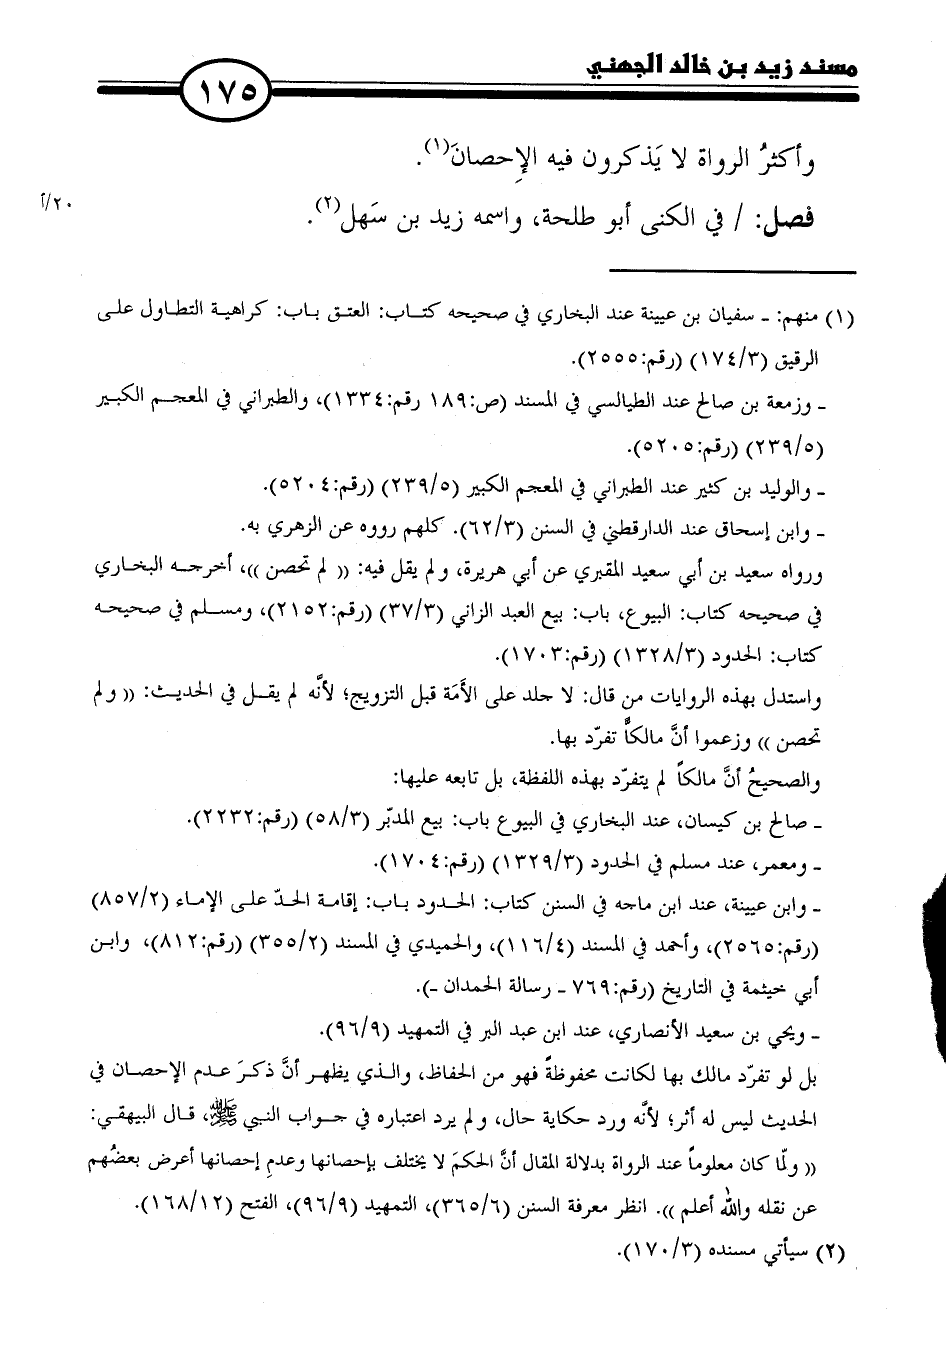 مسند زيد بن خالد الجهني
١٧٥
وأكثرُ الرواة لا يَذكرون فيه الإحصانَ(١).
٢٠/أ
فصل: / في الكنى أبو طلحة، واسمه زيد بن سَهل(٢).
(١) منهم: ـ سفيان بن عيينة عند البخاري في صحيحه كتاب: العتق باب: كراهية التطاول على
الرقيق (١٧٤/٣) (رقم:٢٥٥٥).
ـ وزمعة بن صالح عند الطيالسي في المسند (ص:١٨٩ رقم:١٣٣٤)، والطبراني في المعجم الكبير
(٢٣٩/٥) (رقم:٥٢٠٥).
ـ والوليد بن كثير عند الطبراني في المعجم الكبير (٢٣٩/٥) (رقم:٥٢٠٤).
ـ وابن إسحاق عند الدارقطني في السنن (٦٢/٣). كلهم رووه عن الزهري به.
ورواه سعيد بن أبي سعيد المقبري عن أبي هريرة، ولم يقل فيه: (( لم تحصن ))، أخرجه البخاري
في صحيحه كتاب: البيوع، باب: بيع العبد الزاني (٣٧/٣) (رقم:٢١٥٢)، ومسلم في صحيحه
كتاب: الحدود (١٣٢٨/٣) (رقم:١٧٠٣).
واستدل بهذه الروايات من قال: لا جلد على الأَمَة قبل التزويج؛ لأنَّه لم يقل في الحديث: (( ولم
تحصن )) وزعموا أنَّ مالكاً تفرّد بها.
والصحيحُ أنَّ مالكاً لم يتفرّد بهذه اللفظة، بل تابعه عليها:
ـ صالح بن كيسان، عند البخاري في البيوع باب: بيع المدبّر (٥٨/٣) (رقم:٢٢٣٢).
ـ ومعمر، عند مسلم في الحدود (١٣٢٩/٣) (رقم:١٧٠٤).
ـ وابن عيينة، عند ابن ماجه في السنن كتاب: الحدود باب: إقامة الحدّ على الإماء (٨٥٧/٢)
(رقم:٢٥٦٥)، وأحمد في المسند (١١٦/٤)، والحميدي في المسند (٣٥٥/٢) (رقم:٨١٢)، وابن
أبي خيثمة في التاريخ (رقم:٧٦٩ ـ رسالة الحمدان ـ).
ـ ويحي بن سعيد الأنصاري، عند ابن عبد البر في التمهيد (٩٦/٩).
بل لو تفرّد مالك بها لكانت محفوظةً فهو من الحفاظ، والذي يظهر أنَّ ذكرَ عدم الإحصان في
الحديث ليس له أثر؛ لأنَّه ورد حكاية حال، ولم يرد اعتباره في جواب النبي ﷺ، قال البيهقي:
(( ولّما كان معلوماً عند الرواة بدلالة المقال أنَّ الحكمَ لا يختلف بإحصانها وعدمِ إحصانها أعرض بعضُهم
عن نقله والله أعلم )). انظر معرفة السنن (٣٦٥/٦)، التمهيد (٩٦/٩)، الفتح (١٦٨/١٢).
(٢) سيأتي مسنده (١٧٠/٣).